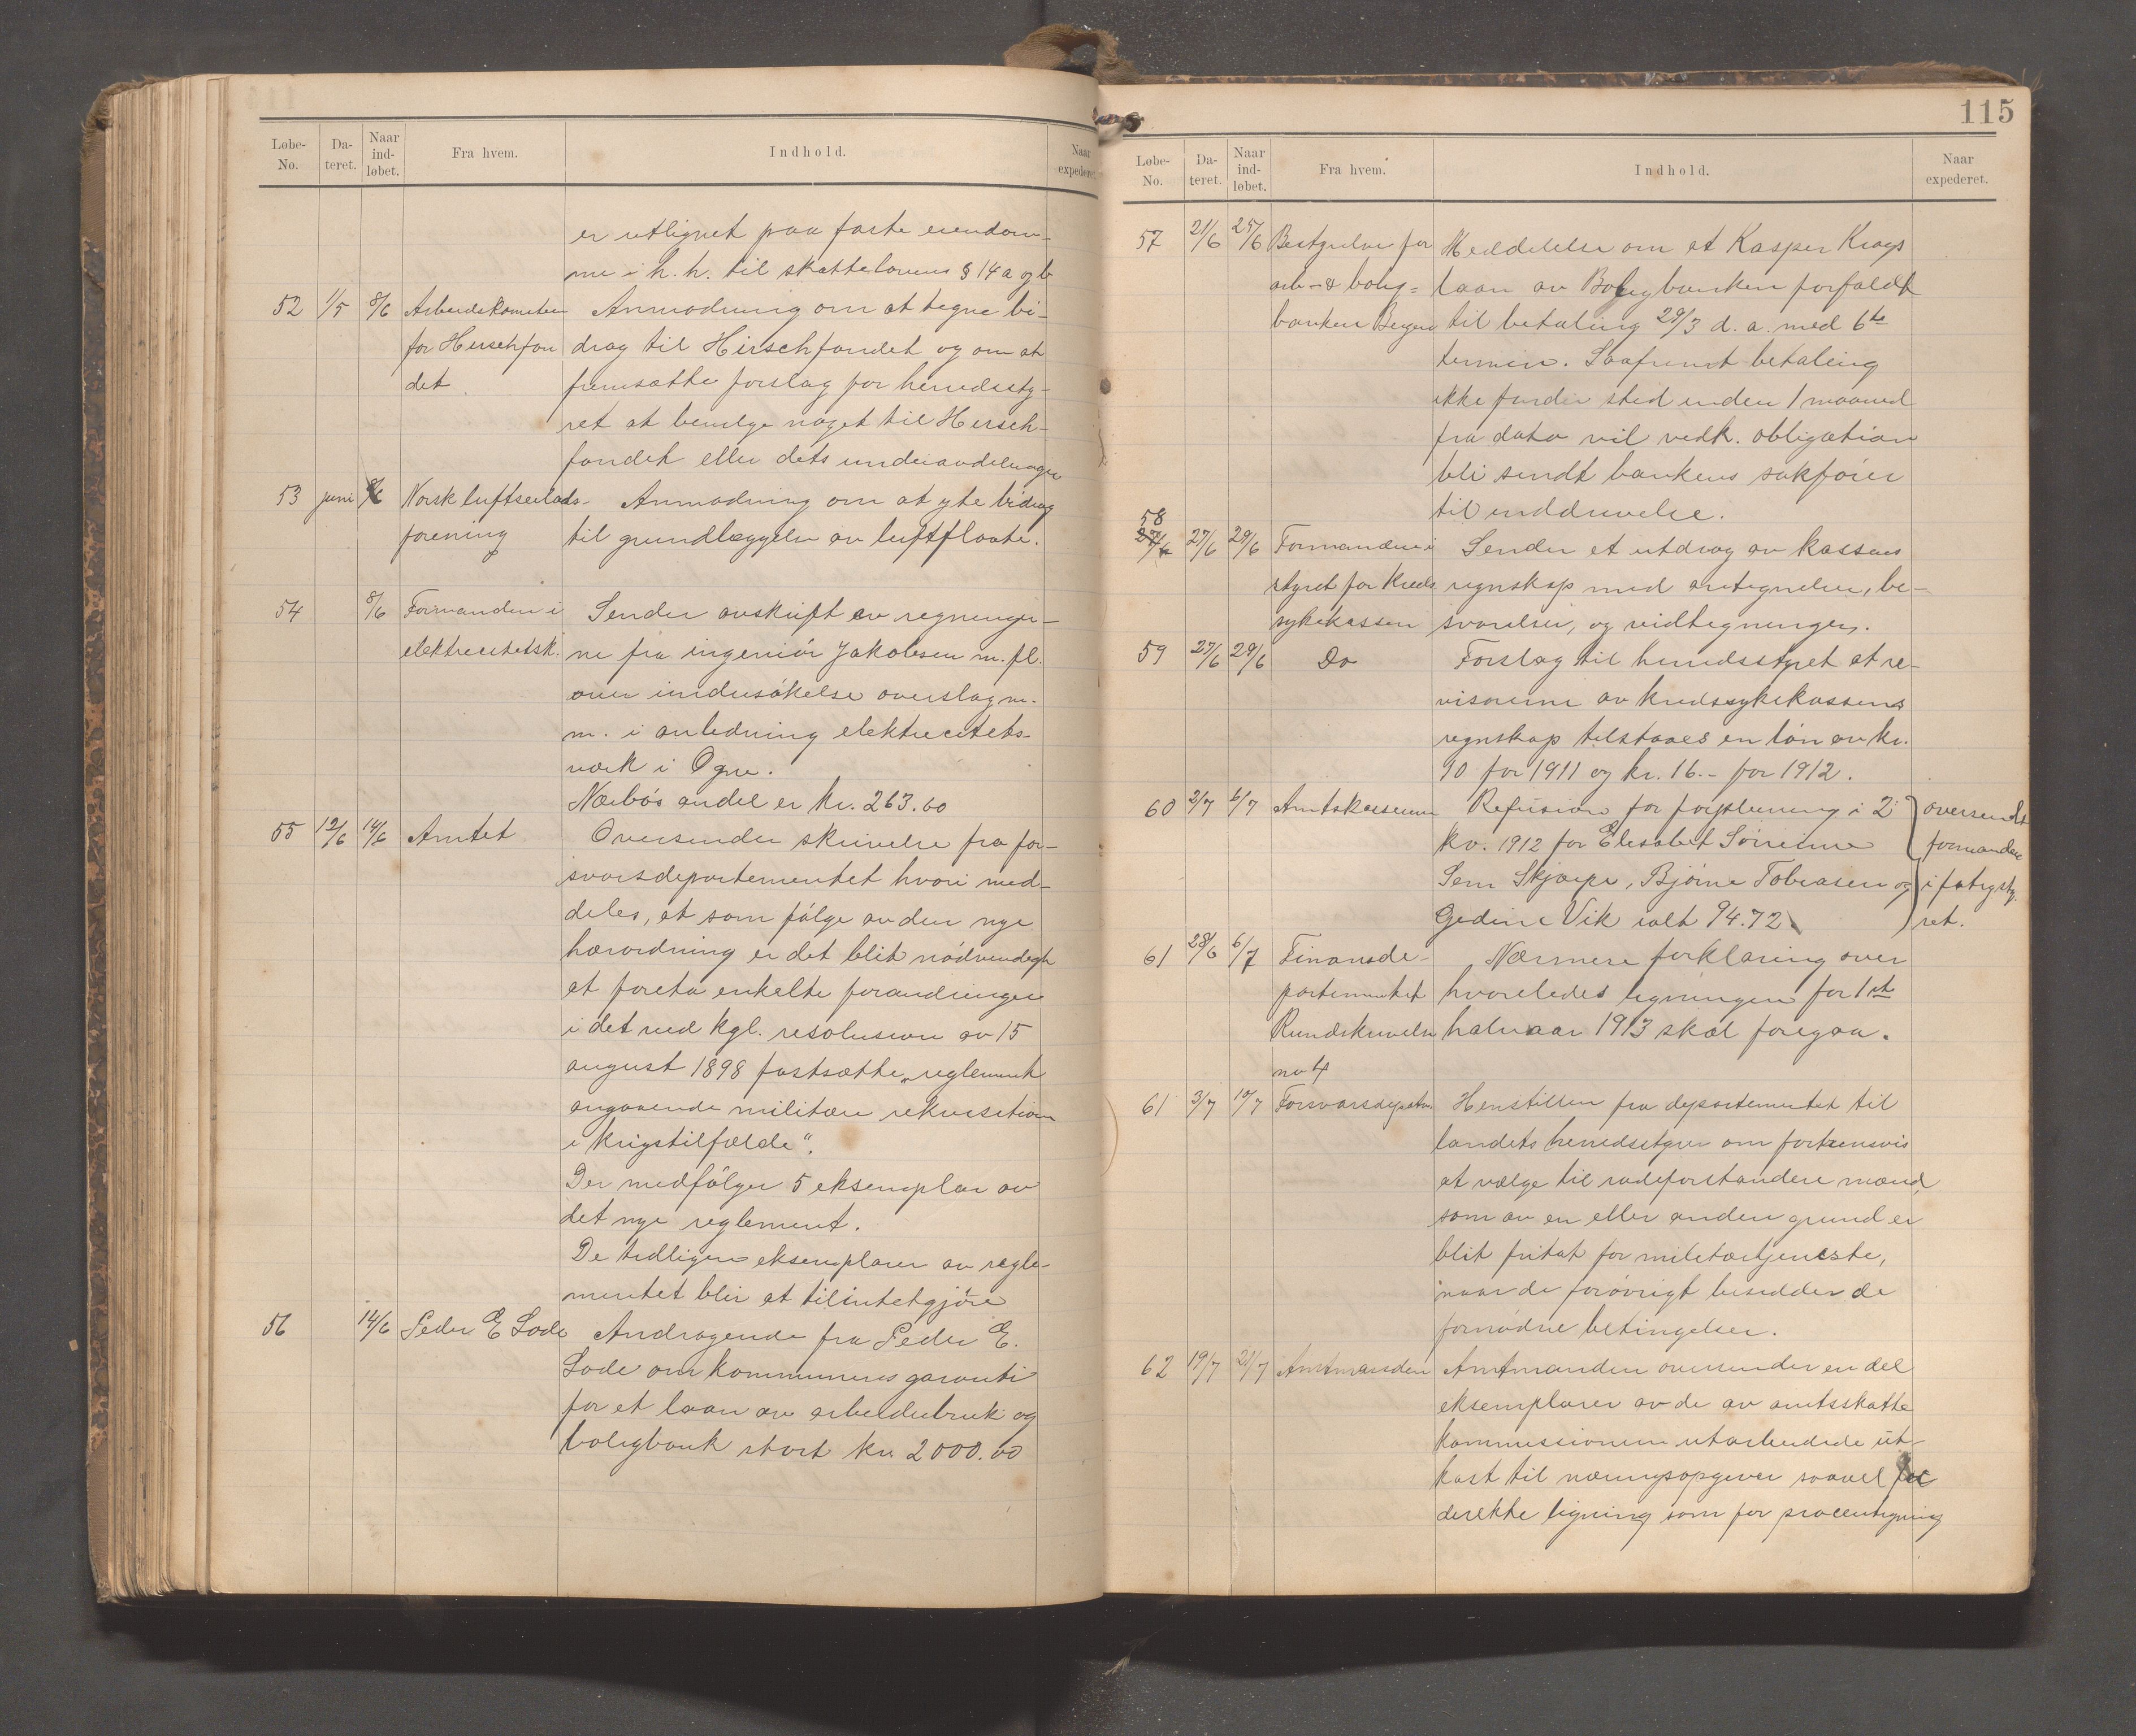 Løbe-No. Da-teret. Naar ind-løbet. Fra hvem. Indhold. Naar expederet.
er utlignet paa faste eiendom-
me i h. h. til skattelovens § 14 a og b
52 1/5 8/6 Arbeidskomiteen Anmodning om at tegne bi-
for Hirschfon drag til Hirschfondet og om at
det fremsætte forslag for herredssty-
ret at bevilge noget til Hirsch-
fondet eller dets underavdelinger
53 juni 8/6 Norsk luftseilads- Anmodning om at yte bidrag
forening til grundlæggelse av luftflaate.
54 8/6 Formanden i Sender avskrift av regninger-
elektricitetsk. ne fra ingeniør Jakobsen m. fl.
over undersøkelse overslag m.
m. i anledning elektricitets-
verk i Ogne.
Nærbøs andel er kr. 263.60
55 12/6 14/6 Amtet Oversender skrivelse fra for-
svarsdepartementet hvori med-
deles, at som følge av den nye
hærordning er det blit nødvendigt
at foreta enkelte forandringer
i det ved kgl. resolusion av 15
august 1898 fastsætte „reglement
angaaende militære rekvisitioner
i krigstilfælde“.
Der medfølger 5 eksemplar av
det nye reglement.
De tidligere eksemplarer av regle-
mentet blir at tilintetgjøre
56 14/6 Peder E Lode Andragende fra Peder E.
Lode om kommunens garanti
for et laan av arbeiderbruk og
boligbank stort kr. 2000.00
115
Løbe-No. Da-teret. Naar ind-løbet. Fra hvem. Indhold. Naar expederet.
57 21/6 25/6 Bestyrelse for Meddelelse om at Kasper Krags
arb- & bolig= laan av Boligbanken forfaldt
banken Bergen til betaling 29/3 d. a. med 6te
termin. Saafremt betaling
ikke finder sted inden 1 maaned
fra dato vil vedk. obligation
bli sendt bankens sakfører
til inddrivelse.
58
27/6 27/6 29/6 Formanden i Sender et utdrag av kassens
styret for kreds regnskap med antegnelser, be-
sykekassen svarelser, og vidtegninger.
59 27/6 29/6 Do Forslag til herredsstyret at re-
visorerne av kredssykekassens
regnskap tilstaaes en løn av kr.
90 for 1911 og kr. 16.- for 1912.
60 2/7 6/7 Amtskassereren Refusion for forpleining i 2 oversendt
kv. 1912 for Elisabet Sørine formanden
Sem Skjærpe, Bjørne Tobiasen og i fatigsty
Gedine Vik ialt 94.72 ret.
61 28/6 6/7 Finansde- Nærmere forklaring over
partementet hvorledes ligningen for 1ste
Rundskrivelse halvaar 1913 skal foregaa.
no 4
61 3/7 10/7 Forsvarsdepartm Henstillen fra departementet til
landets herredsstyrer om fortrinsvis
at vælge til rodeforstandere mænd,
som av en eller anden grund er
blit fritat for militærtjeneste,
naar de forøvrigt besidder de
fornødne betingelser.
62 19/7 21/7 Amtmanden Amtmanden oversender en del
eksemplarer av de av amtsskatte
kommissionen utarbeidede ut-
kast til næringsopgaver saavel for
direkte ligning som for procentligning